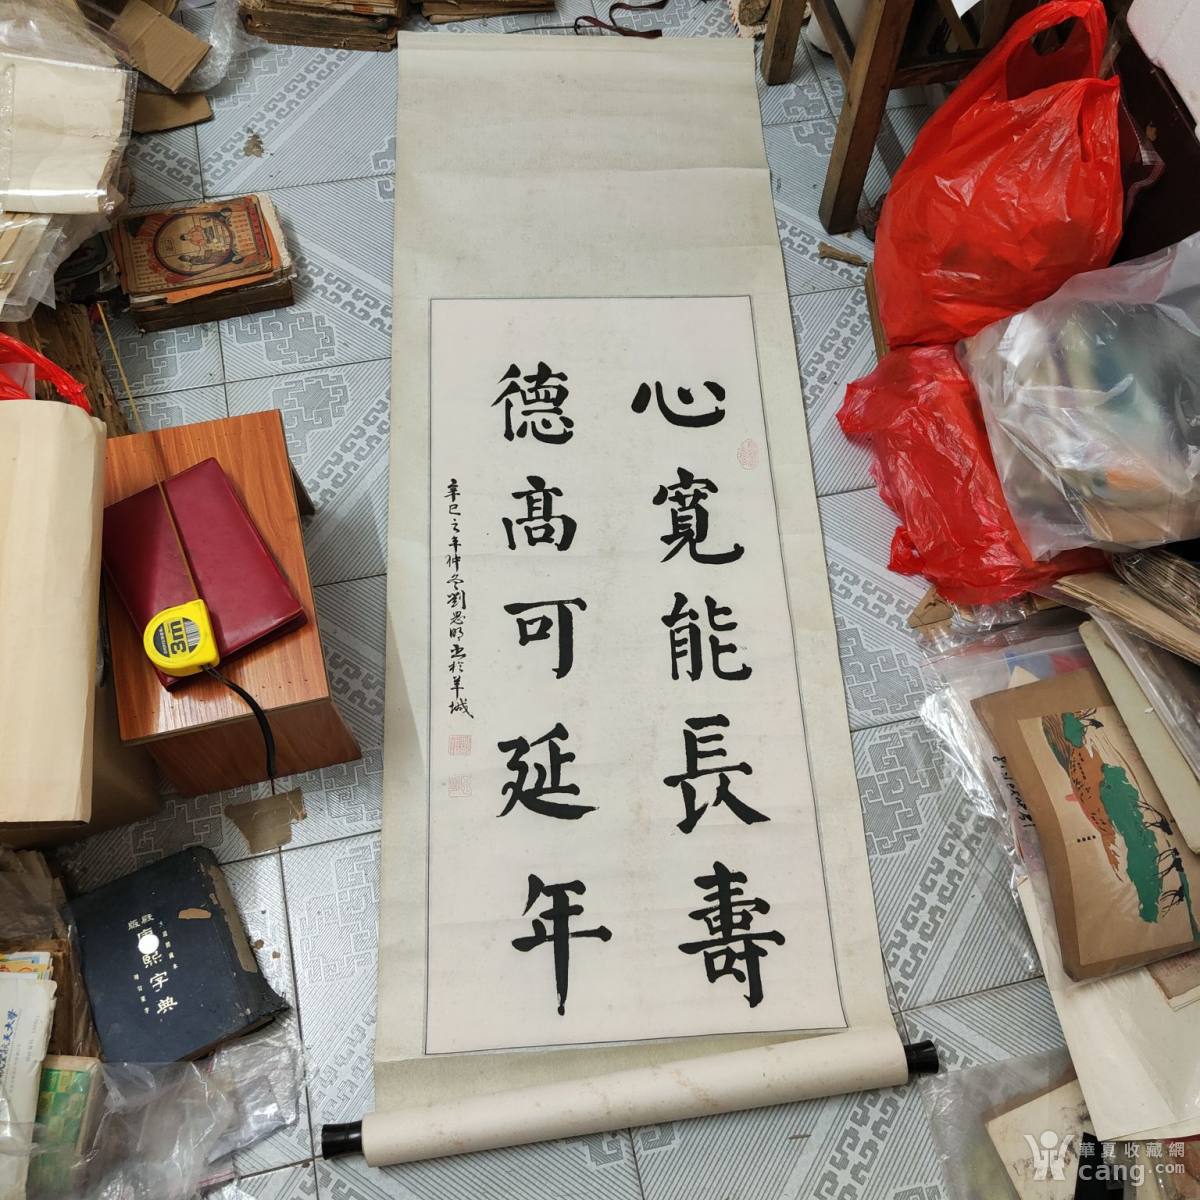 心寬能長壽
德高可延年
辛巳之年仲冬劉思明書於羊城
3m
康熙字典
華夏收藏網
cang.com